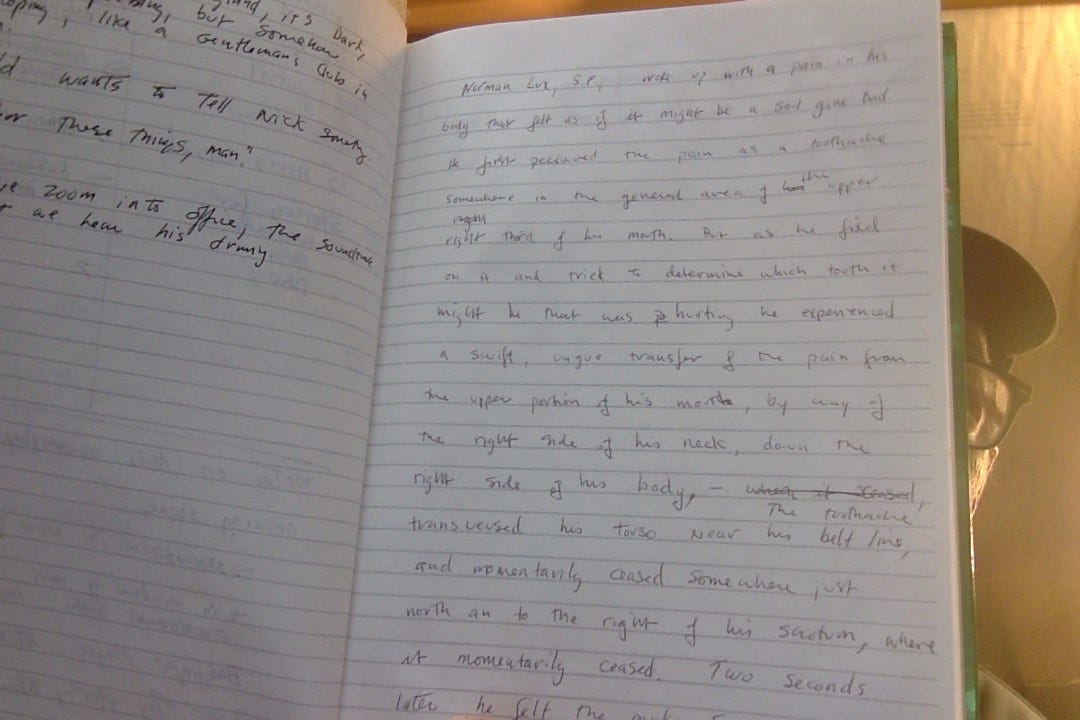 ground, its Dark,
but somehow
like a Gentleman's Club in
wants to Tell Nick Somethg
or These Things, man."
we zoom into office, the soundtrack
we hear his drmmy
Norman Lux, S.P., woke up with a pain in his
body that felt as if it might be a soul gone bad.
He first pecieved the pain as a toothache
somewhere in the general area of the upper
right third of his mouth. But as he fixed
on it and trick to determine which tooth it
might be that was hurting he experienced
a swift, vague transfer of the pain from
the upper portion of his mouth, by way of
the right side of his neck, down the
right side of his body, – when it ceased,
The toothache
transversed his torso near his belt line,
and momentarily ceased somewhere just
north an to the right of his scrotum, where
it momentarily ceased. Two seconds
later he felt the